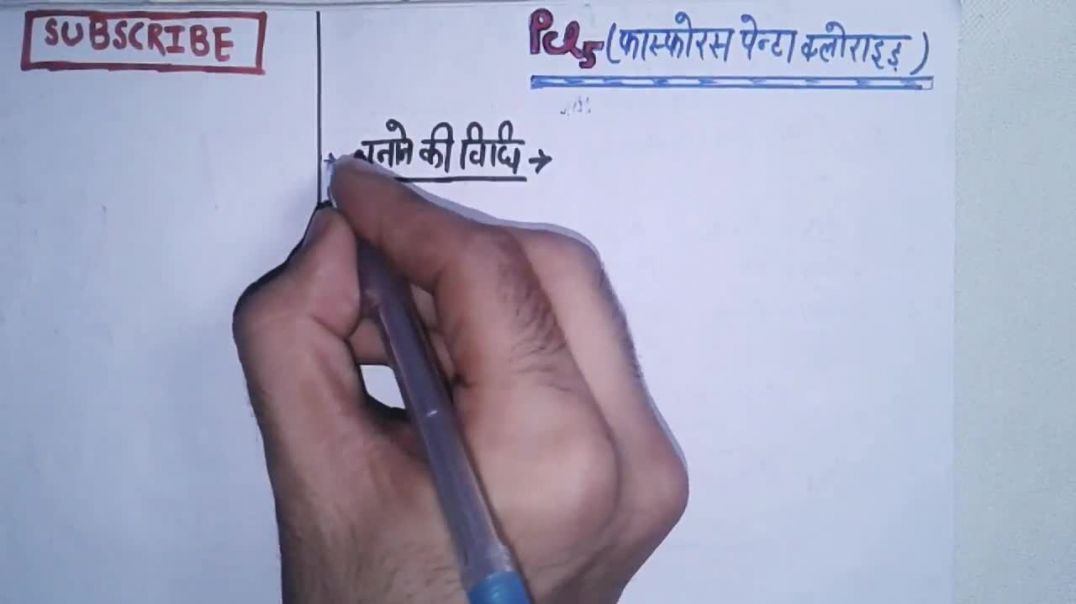 SUBSCRIBE
PCl5 (फास्फोरस पेन्टा क्लोराइड)
बनाने की विधि →